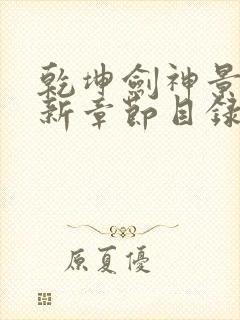 乾坤劍神景
新章節目錄
原夏優